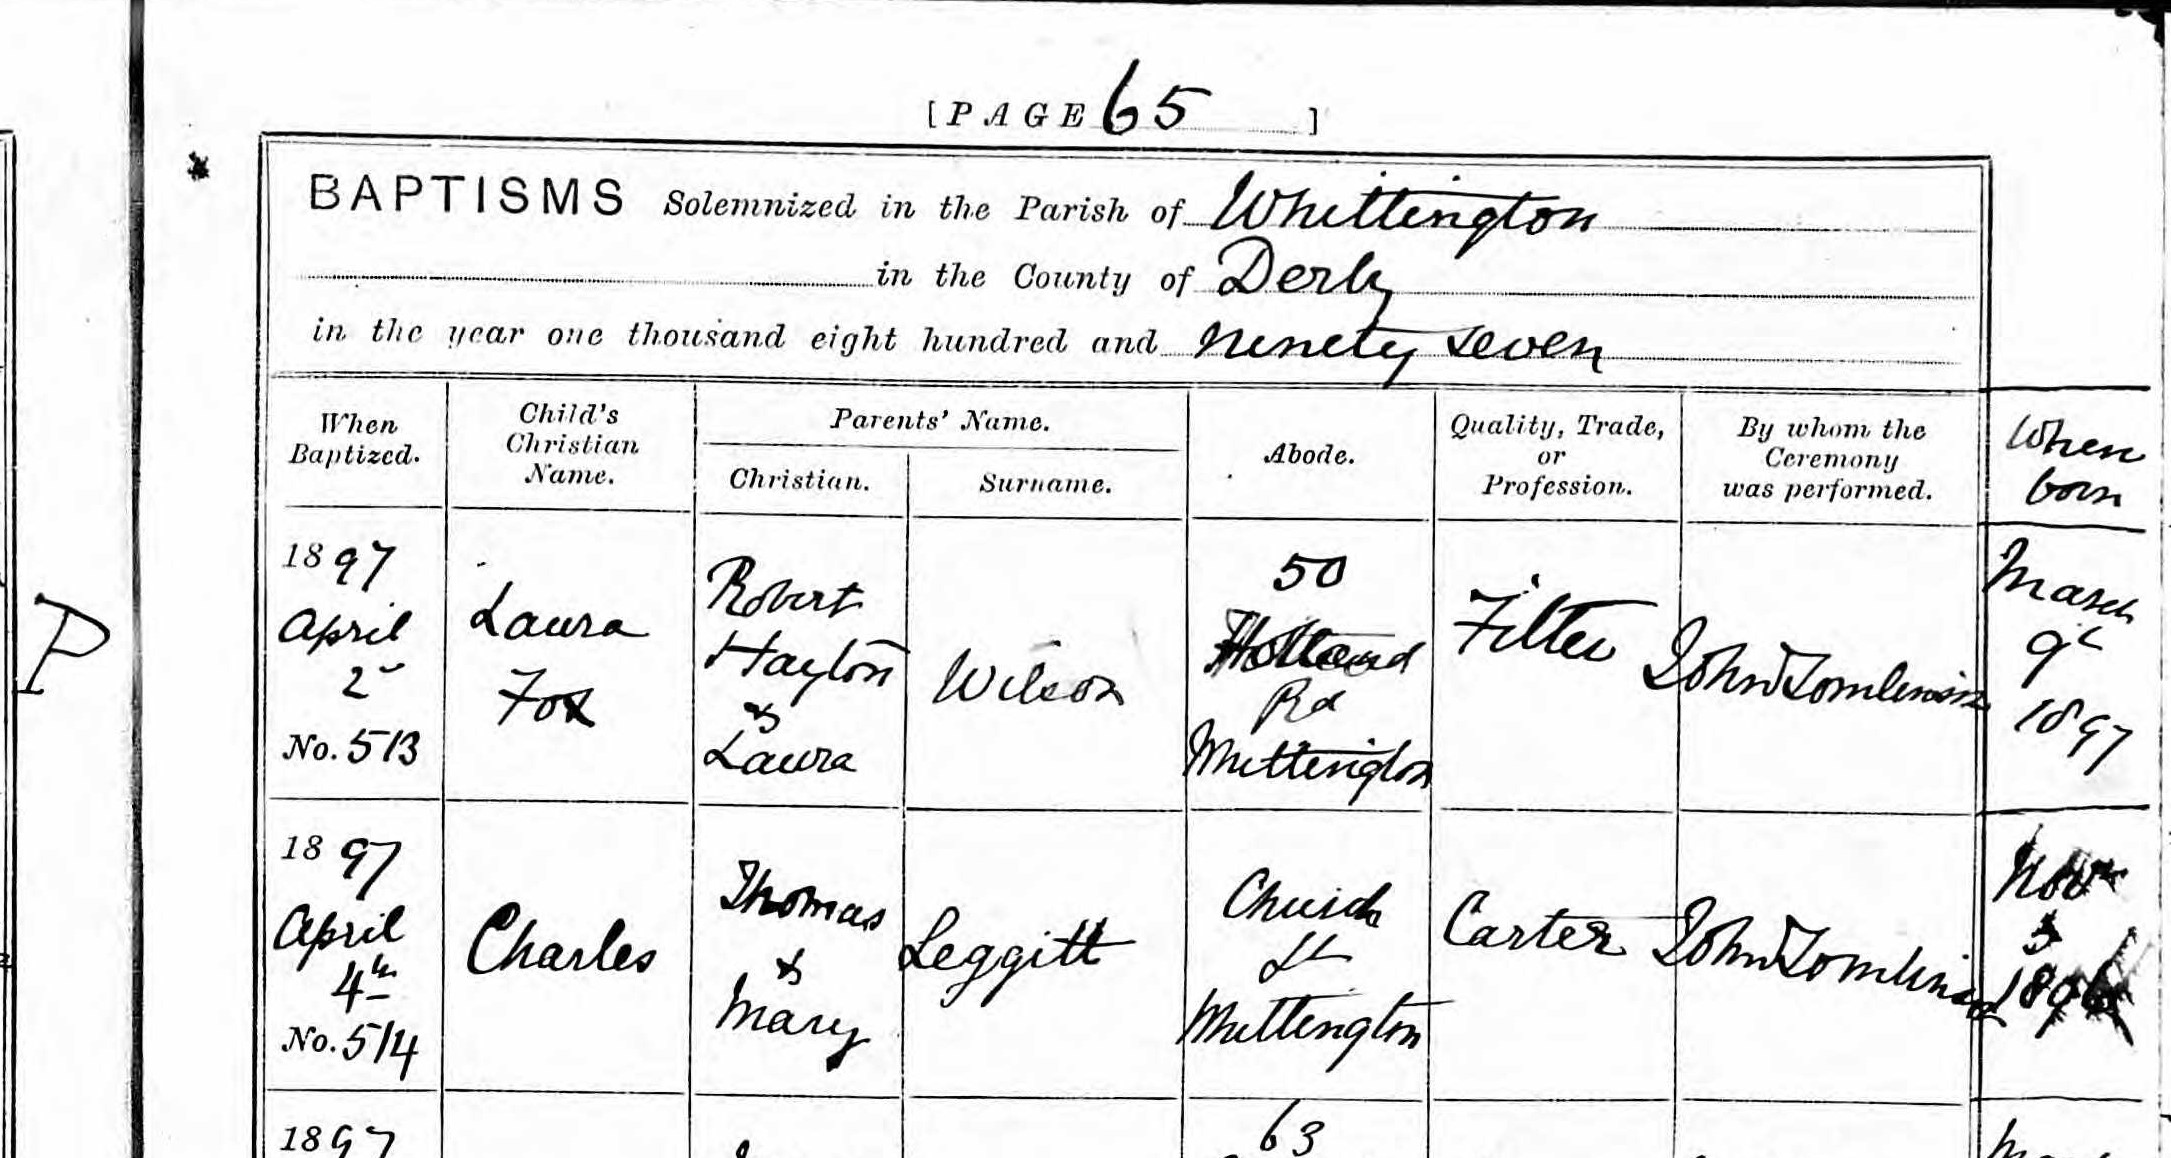 [PAGE 65 ]
BAPTISMS Solemnized in the Parish of Whittington
in the County of Derby
in the year one thousand eight hundred and ninety seven
When Baptized.
Child's Christian Name.
Parents' Name.
Christian.
Surname.
Abode.
Quality, Trade, or Profession.
By whom the Ceremony was performed.
When born
P
1897
April
2
No. 513
Laura
Fox
Robert
Hayton
&
Laura
Wilson
50
Holland
Rd
Whittington
Fitter
John Tomlinson
March
9th
1897
1897
April
4th
No. 514
Charles
Thomas
&
Mary
Leggitt
Church
St
Whittington
Carter
John Tomlinson
Novr
1896
1897
63